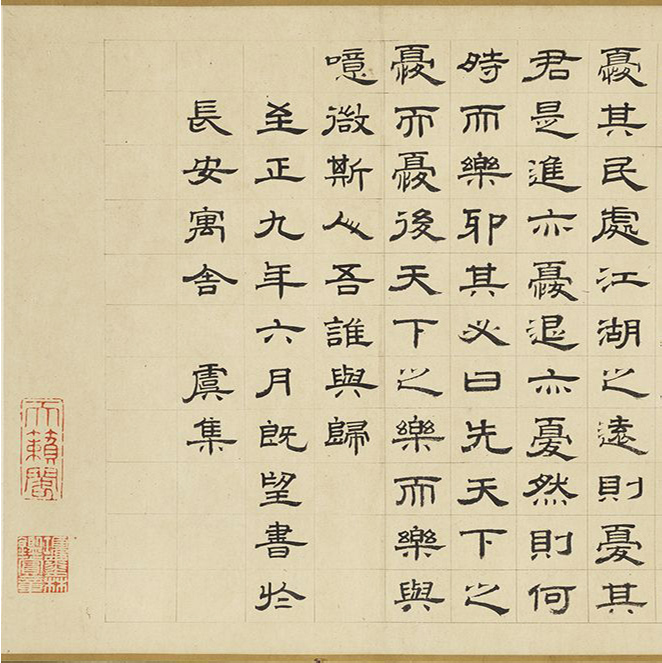 憂其民處江湖之遠則憂其
君是進亦憂退亦憂然則何
時而樂耶其必曰先天下之
憂而憂後天下之樂而樂與
噫微斯人吾誰與歸
至正九年六月既望書於
長安寓舍 虞集
天籟閣
項墨林鑑賞章